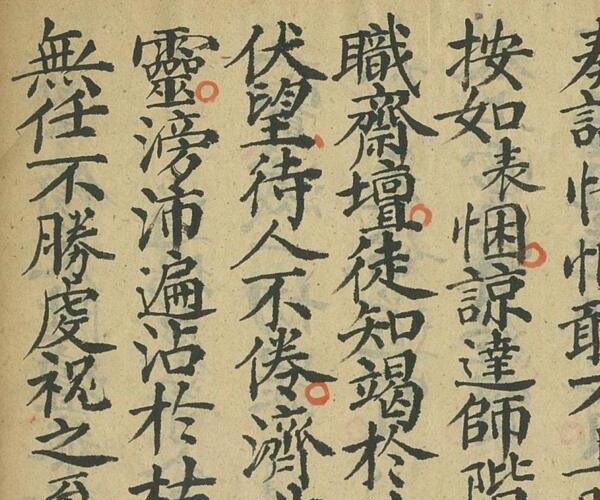 按如表悃諒達師階
職齋壇徒知竭於
伏望待人不倦濟
靈滂沛遍沾於
無任不勝虔祝之至